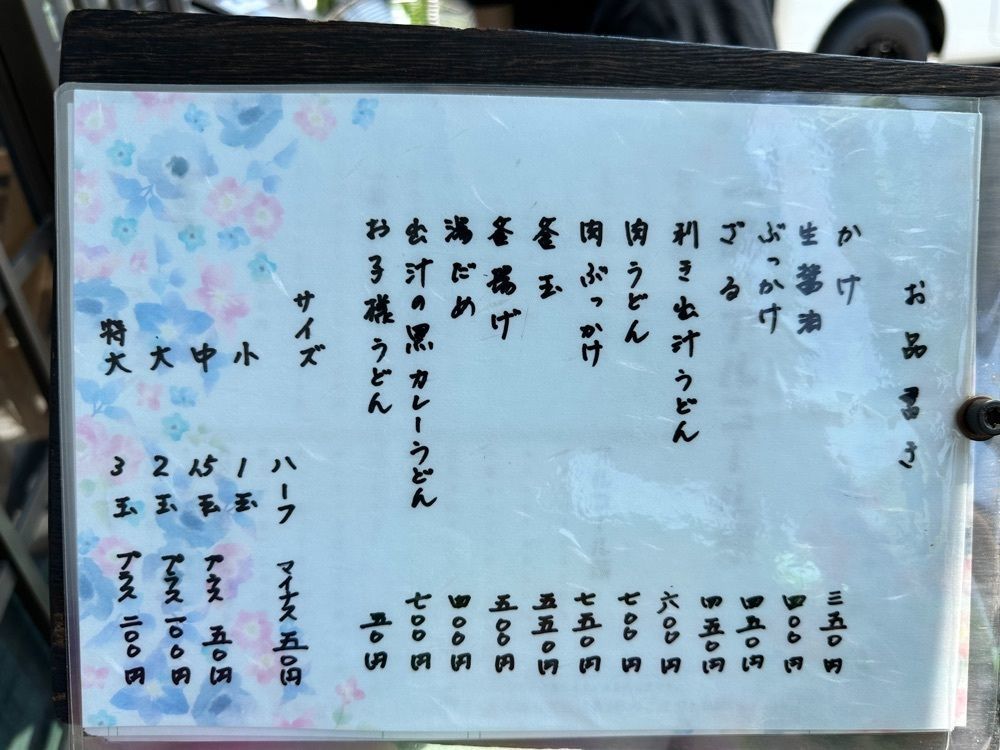 お品書き
かけ 三五〇円
生醤油 四〇〇円
ぶっかけ 四五〇円
ざる 四五〇円
利き出汁うどん 六〇〇円
肉うどん 七〇〇円
肉ぶっかけ 七五〇円
釜玉 五五〇円
釜揚げ 五〇〇円
湯だめ 四〇〇円
出汁の黒カレーうどん 七〇〇円
お子様うどん 五〇円
サイズ ハーフ マイナス 五〇円
小 1玉
中 1.5玉 プラス 五〇円
大 2玉 プラス 一〇〇円
特大 3玉 プラス 二〇〇円